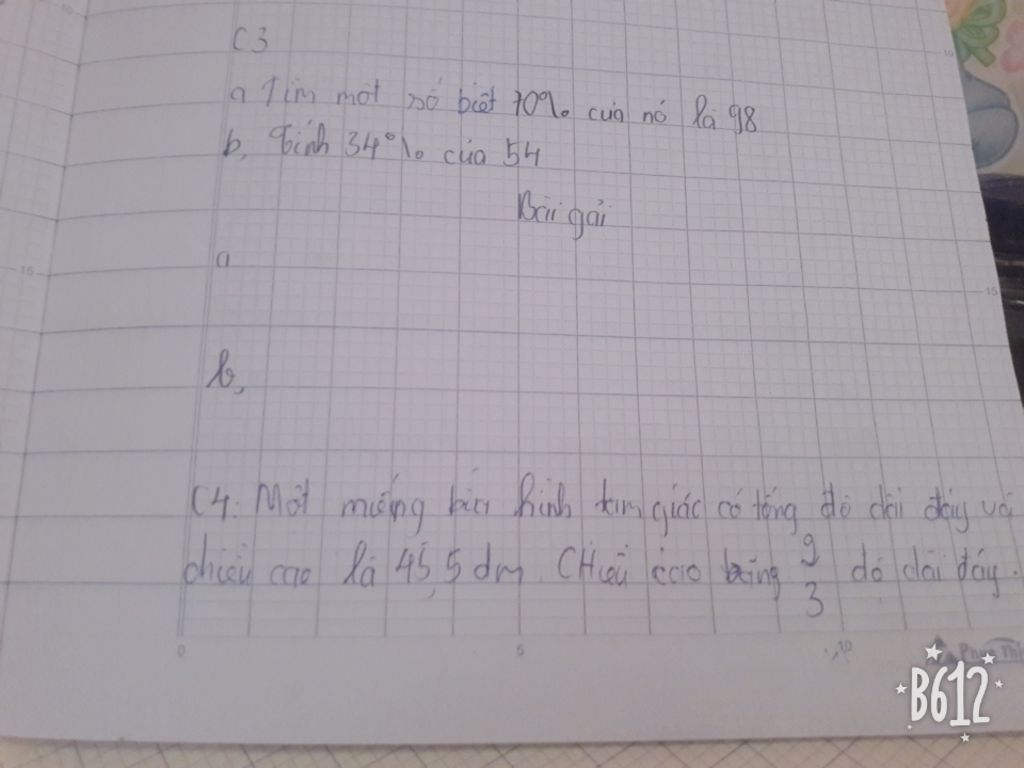 C3
a Tìm một số biết 70% của nó là 98
b, Tính 34% của 54
Bài gải
a
b,
C4: Một miếng bìa hình tam giác có tổng độ dài đáy và
chiều cao là 45,5 dm. CHiều cao bằng 9/3 độ dài đáy.
15
10
15
0
5
10
B612